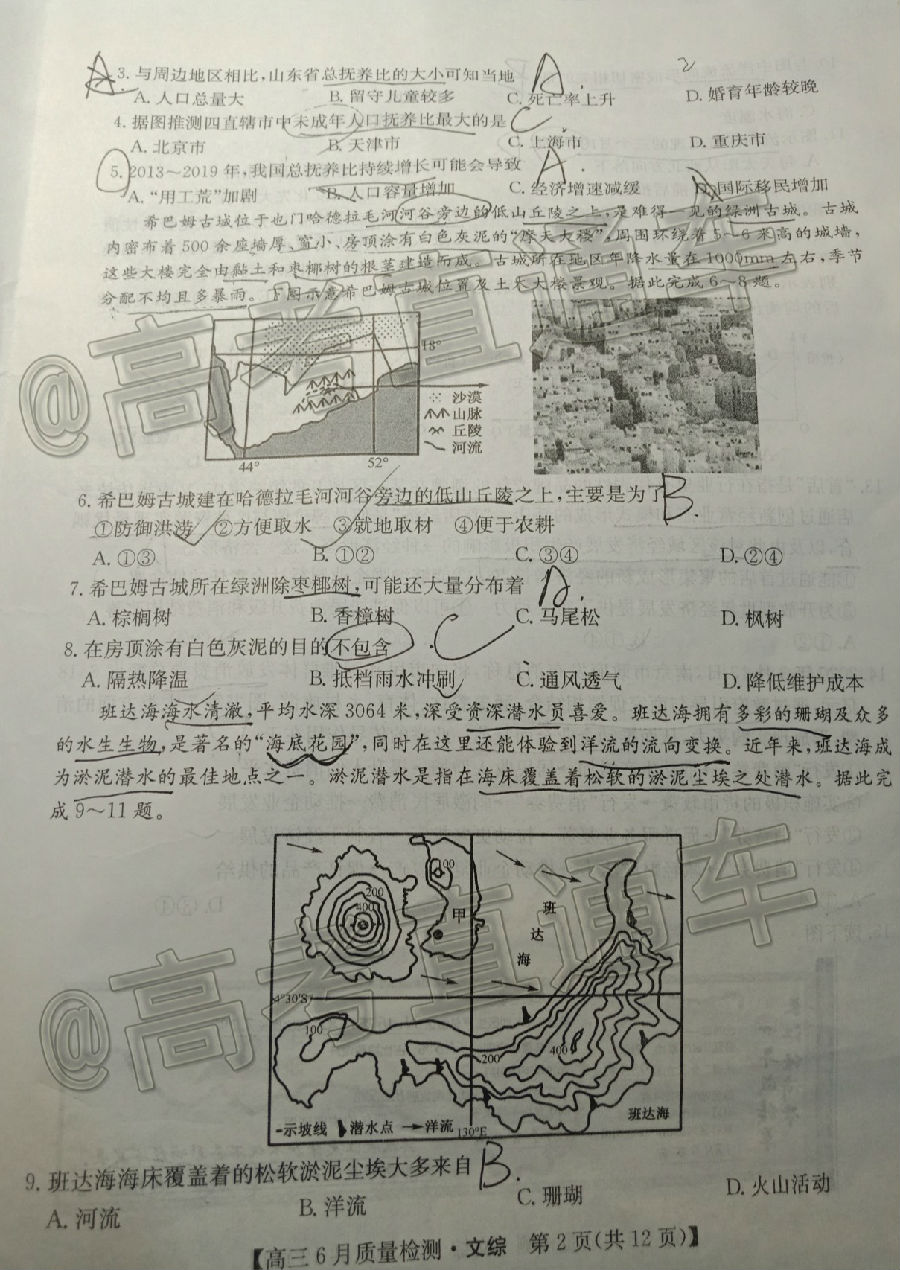 A. 3. 与周边地区相比,山东省总抚养比的大小可知当地 A.
A. 人口总量大 B. 留守儿童较多 C. 死亡率上升 D. 婚育年龄较晚
4. 据图推测四直辖市中未成年人口抚养比最大的是 C
A. 北京市 B. 天津市 C. 上海市 D. 重庆市
5. 2013～2019年,我国总抚养比持续增长可能会导致 A.
A. “用工荒”加剧 B. 人口容量增加 C. 经济增速减缓 D. 国际移民增加
希巴姆古城位于也门哈德拉毛河河谷旁边的低山丘陵之上,是难得一见的绿洲古城。古城
内密布着500余座墙厚、窗小、房顶涂有白色灰泥的“摩天大楼”,周围环绕着5～6米高的城墙,
这些大楼完全由黏土和枣椰树的根茎建造而成。古城所在地区年降水量在100mm左右,季节
分配不均且多暴雨。下图示意希巴姆古城位置及土乐大楼景观。据此完成6～8题。
18°
沙漠
山脉
丘陵
河流
44° 52°
6. 希巴姆古城建在哈德拉毛河河谷旁边的低山丘陵之上,主要是为了 B.
①防御洪涝 ②方便取水 ③就地取材 ④便于农耕
A. ①③ B. ①② C. ③④ D. ②④
7. 希巴姆古城所在绿洲除枣椰树,可能还大量分布着 A.
A. 棕榈树 B. 香樟树 C. 马尾松 D. 枫树
8. 在房顶涂有白色灰泥的目的不包含 C
A. 隔热降温 B. 抵档雨水冲刷 C. 通风透气 D. 降低维护成本
班达海海水清澈,平均水深3064米,深受资深潜水员喜爱。班达海拥有多彩的珊瑚及众多
的水生生物,是著名的“海底花园”,同时在这里还能体验到洋流的流向变换。近年来,班达海成
为淤泥潜水的最佳地点之一。淤泥潜水是指在海床覆盖着松软的淤泥尘埃之处潜水。据此完
成9～11题。
200
400
100
甲
班
达
海
4°30′S
100
200
400
示坡线 潜水点 洋流 130°E 班达海
9. 班达海海床覆盖着的松软淤泥尘埃大多来自 B.
A. 河流 B. 洋流 C. 珊瑚 D. 火山活动
【高三6月质量检测·文综 第2页(共12页)】
@高考直通车
@高考直通车